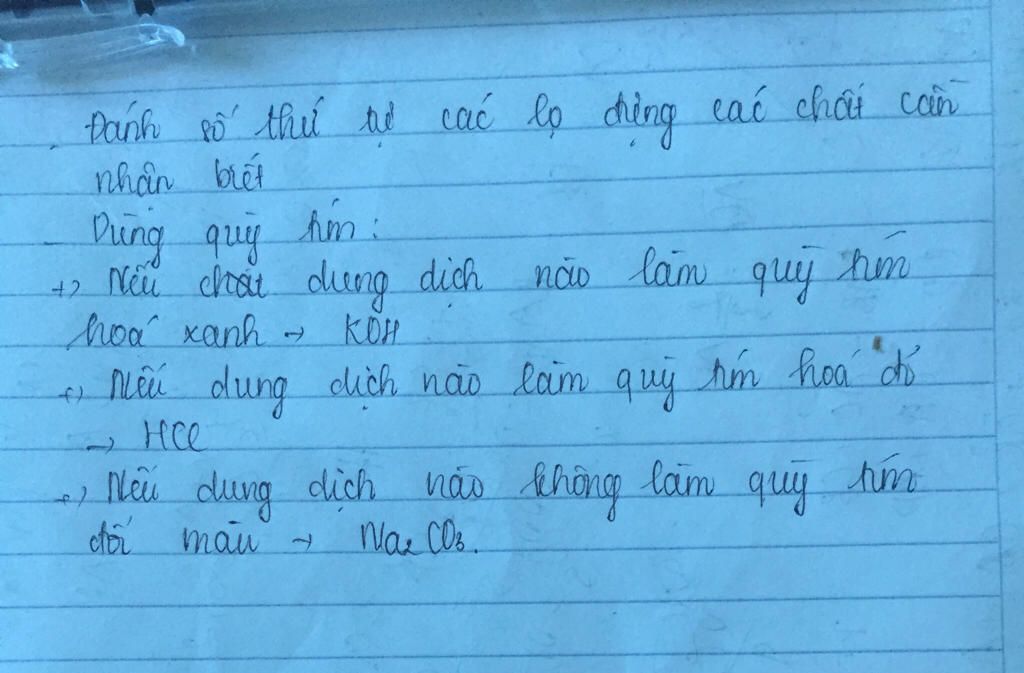 . Đánh số thứ tự các lọ đựng các chất cần
nhận biết
- Dùng quỳ tím :
+) Nếu chất dung dịch nào làm quỳ tím
hoá xanh → KOH
+) Nếu dung dịch nào làm quỳ tím hoá đỏ
→ HCl
+) Nếu dung dịch nào không làm quỳ tím
đổi màu → Na₂CO₃.